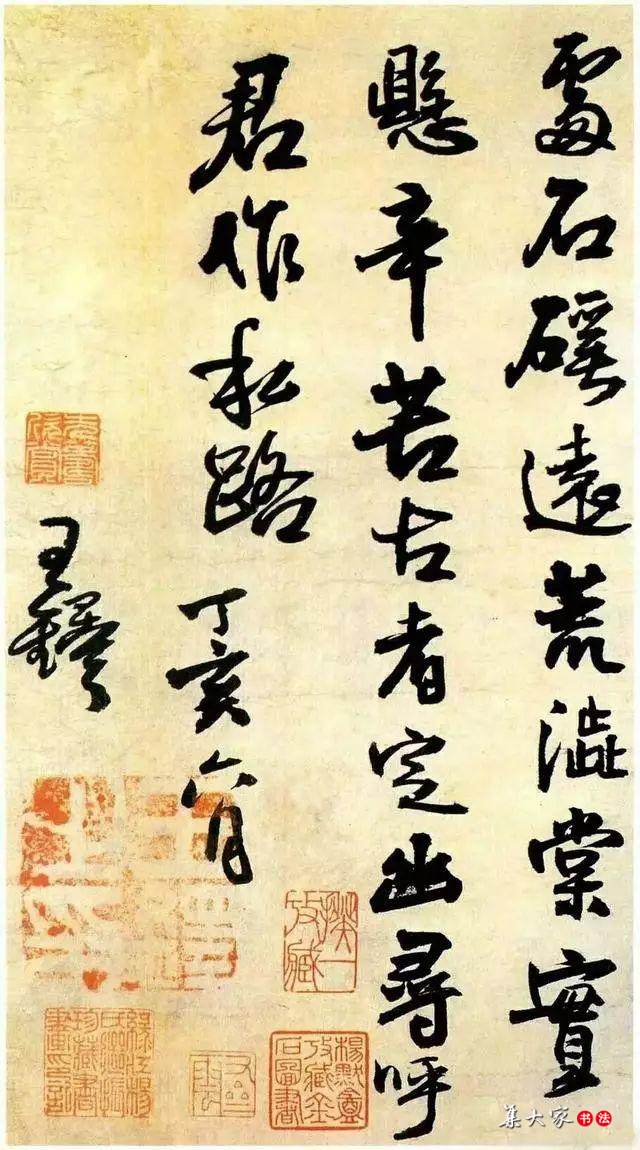 處石磎遠荒澁棠實
懸辛苦古者定幽尋呼
君作私路
丁亥六月
王鐸
王鐸之印
集大家 书法